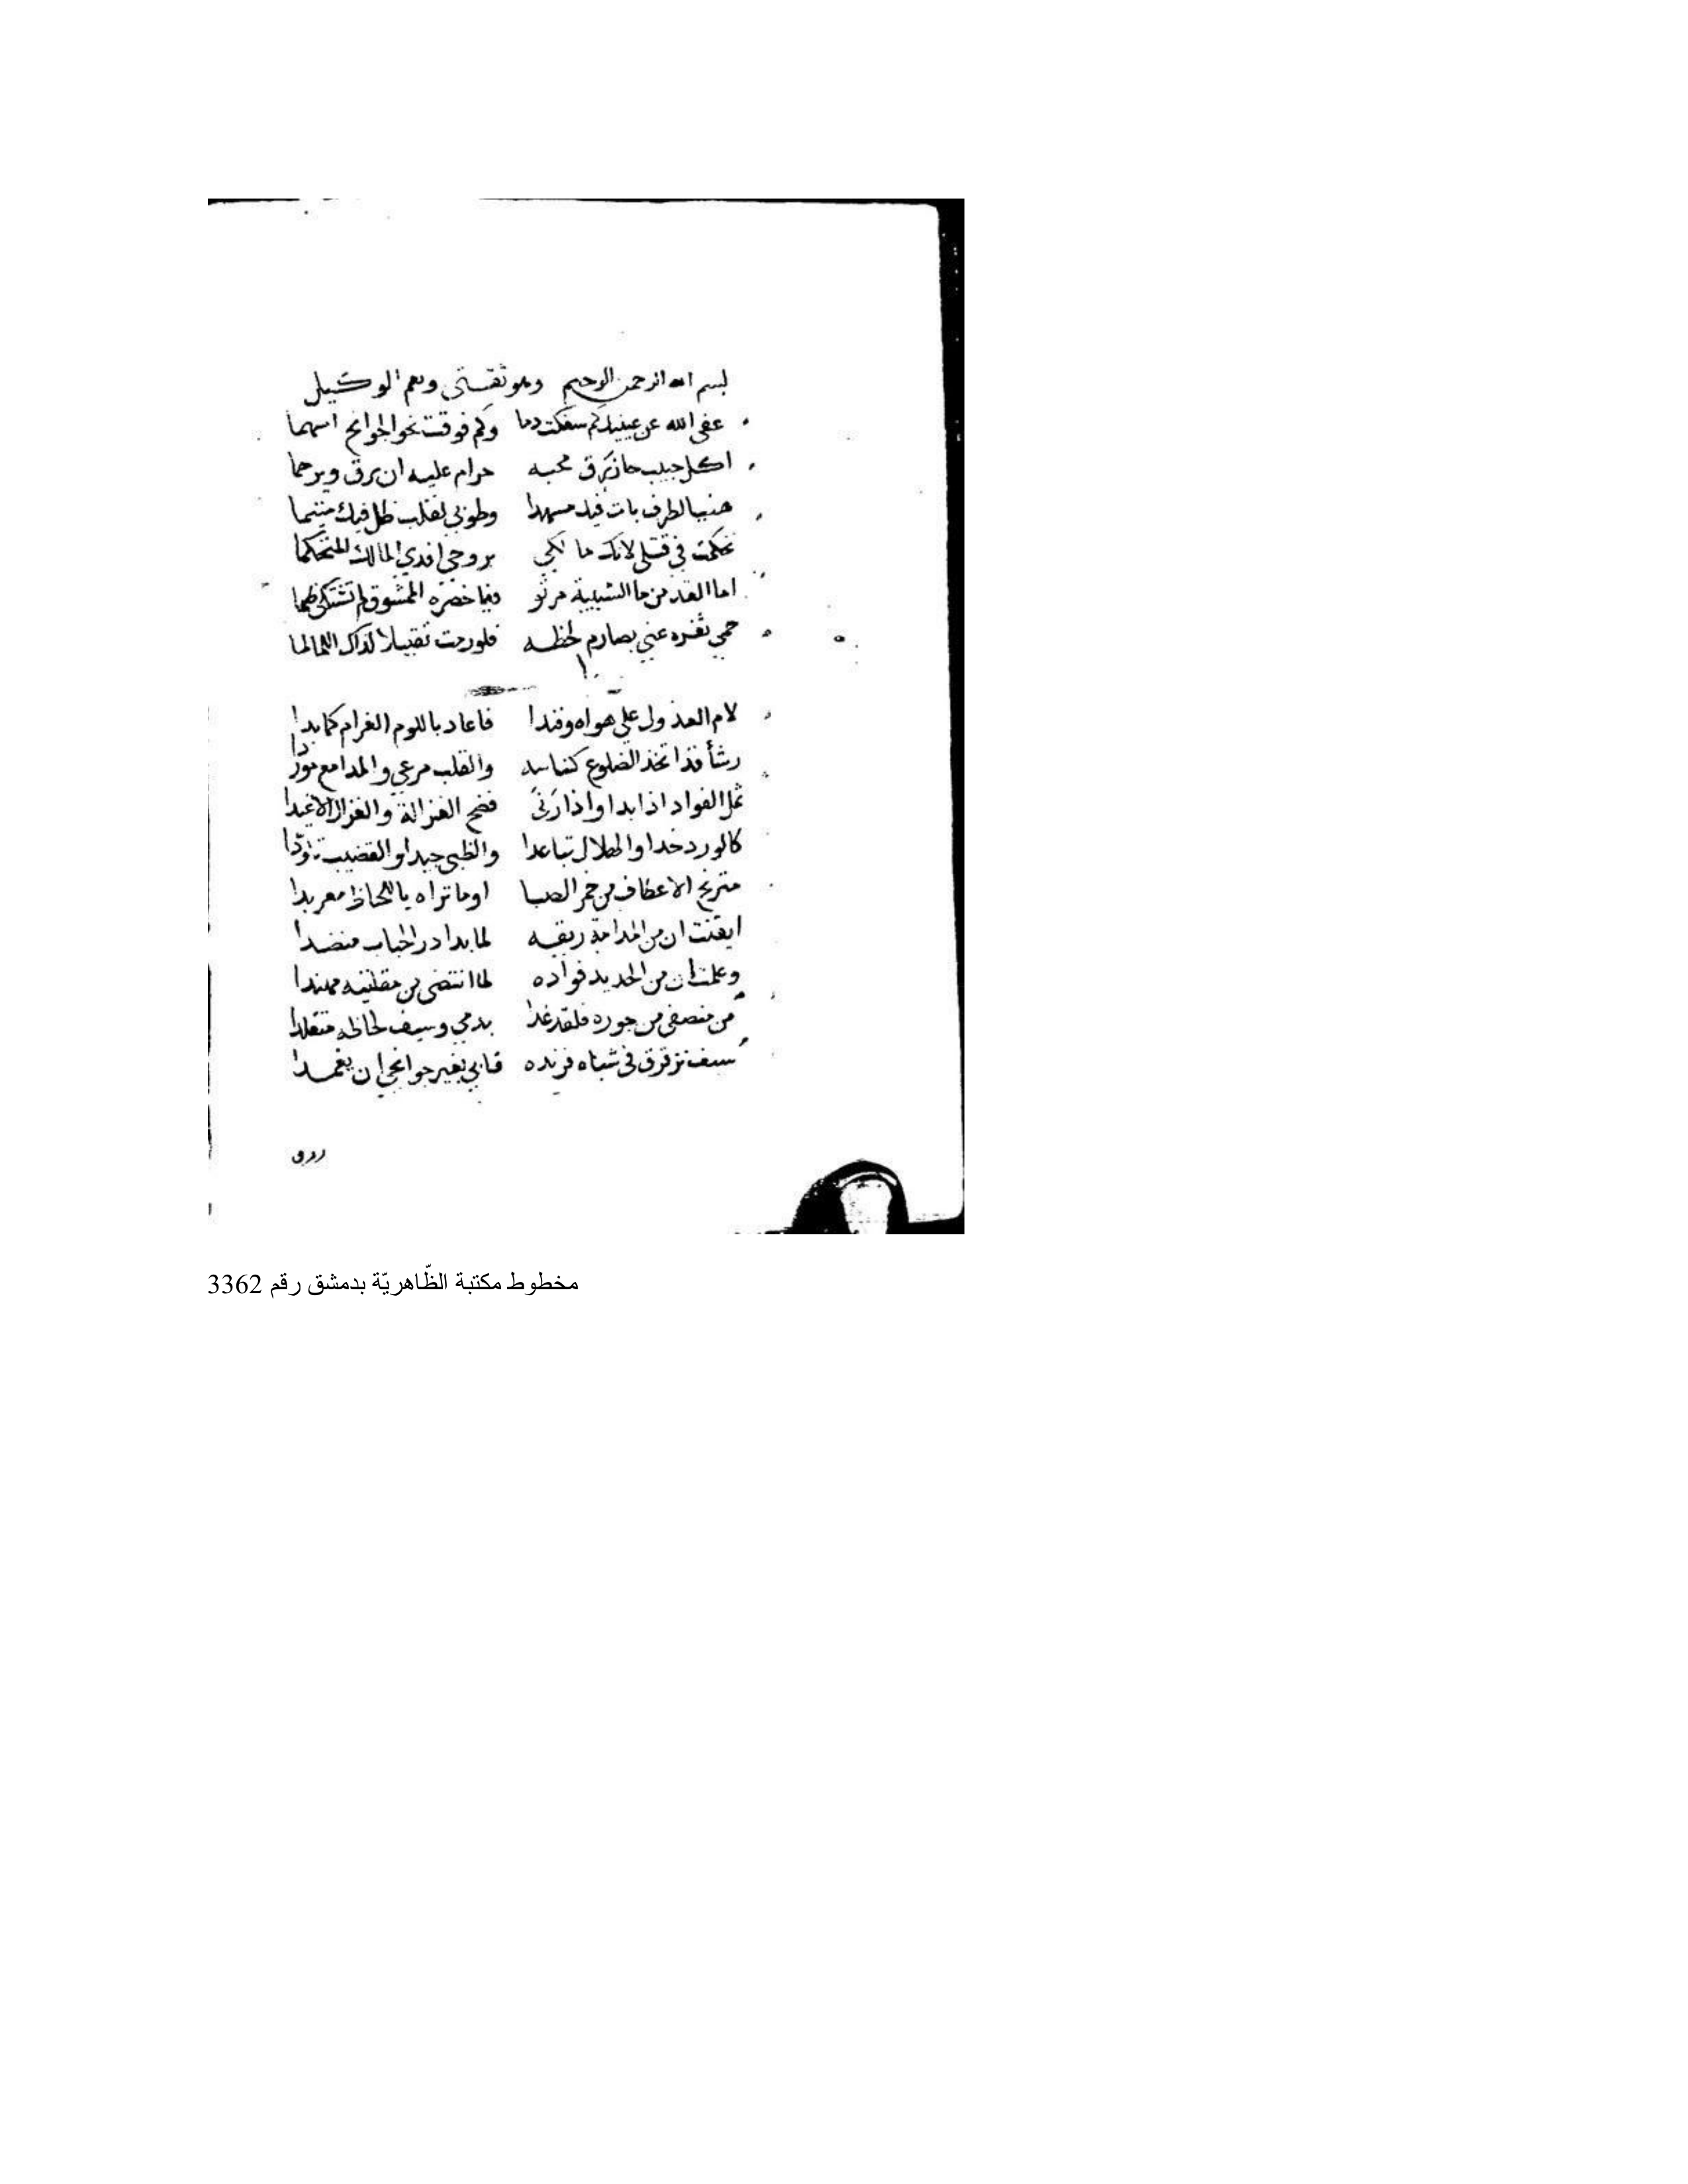 بسم الله الرحمن الرحيم وهو ثقتي ونعم الوكيل
عفى الله عن عينيك كم سفكت دما وكم فوقت نحو الجوانح اسهما
اكل حبيب حاز رق محبه حرام عليه ان يرق ويرحما
هنيا لطرف بات فيك مسهدا وطوبي لقلب ظل فيك متيما
تحكمت في قتلي لانك مالكي بروحي افدي المالك المتحكما
اما القد من ما الشبيبة مرتو فيا خصره الممشوق لم تشتكي ظما
حمي ثغره عني بصارم لحظه فلو رمت تقبيلا لذاك اللمى لما
لام العذول علي هواه وفندا فاعاد باللوم الغرام كما بدا
رشأ قد اتخذ الضلوع كناسه والقلب مرعي والمدامع موردا
ثمل الفواد اذا بدا واذا رنى فضح الغزالة والغزال الاغيدا
كالورد خدا والهلال تباعدا والظبي جيدا والقضيب تاودا
مترنح الاعطاف من خمر الصبا اوما تراه بالحاظ معربدا
ايقنت ان من المدامة ريقه لما بدا در الحباب منضدا
وعلمت ان من الحديد فواده لما انتضى من مقلتيه مهندا
من منصفي من جوره فلقد غدا بدمي وسيف لحاظه متقلدا
سيف ترقرق في شباه فرنده فابي بغير جوانحي ان يغمدا
مخطوط مكتبة الظّاهريّة بدمشق رقم 3362